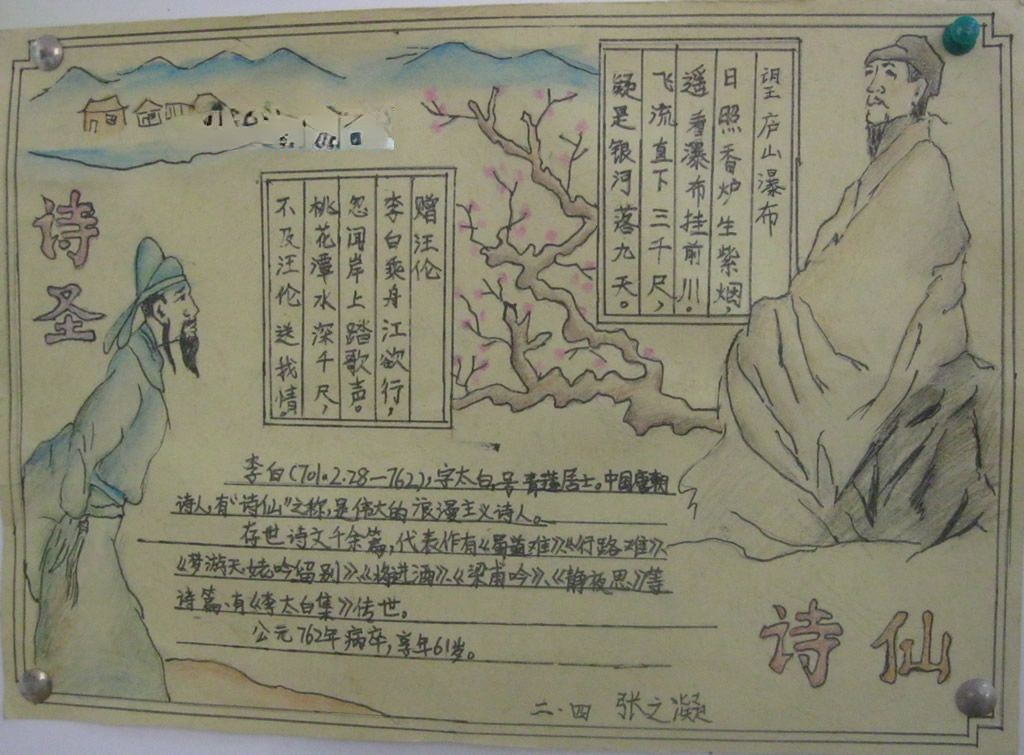 诗圣
望庐山瀑布
日照香炉生紫烟，
遥看瀑布挂前川。
飞流直下三千尺，
疑是银河落九天。
赠汪伦
李白乘舟江欲行，
忽闻岸上踏歌声。
桃花潭水深千尺，
不及汪伦送我情。
李白（701.2.28—762），字太白，号青莲居士。中国唐朝
诗人，有“诗仙”之称，是伟大的浪漫主义诗人。
存世诗文千余篇，代表作有《蜀道难》、《行路难》、
《梦游天姥吟留别》、《将进酒》、《梁甫吟》、《静夜思》等
诗篇、有《李太白集》传世。
公元762年病卒，享年61岁。
诗仙
二·四 张之凝